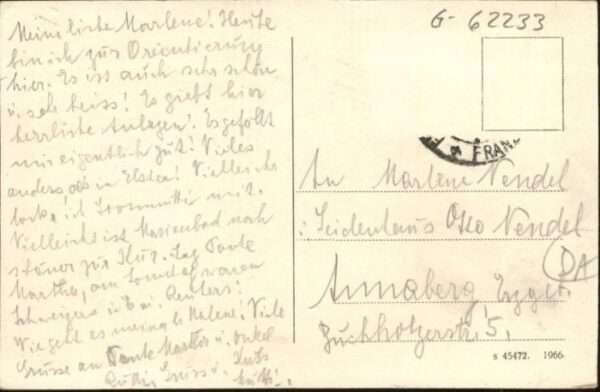 Meine liebe Marlene! Heute
bin ich zur Orientierung
hier. Es ist auch sehr schön
u. sehr heiss! Es giebt hier
herrliche Anlagen! Es gefällt
mir eigentlich gut! Vieles
anders als in Elster! Vielleicht
locke ich Grossmutti mit.
Vielleicht ist Marienbad noch
schöner zur Kur. Sag Tante
Martha, am Sonntag waren
Schweigers in b. Reuters!
Wie geht es meine Malene! Viele
Grüsse an Tante Martha u. Onkel
G- 62233
FRAN
An Marlene Vendel
Seidenhaus Otto Vendel
DA
Annaberg Erzgeb.
Buchholzerstr. 5.
s 45472. 1966